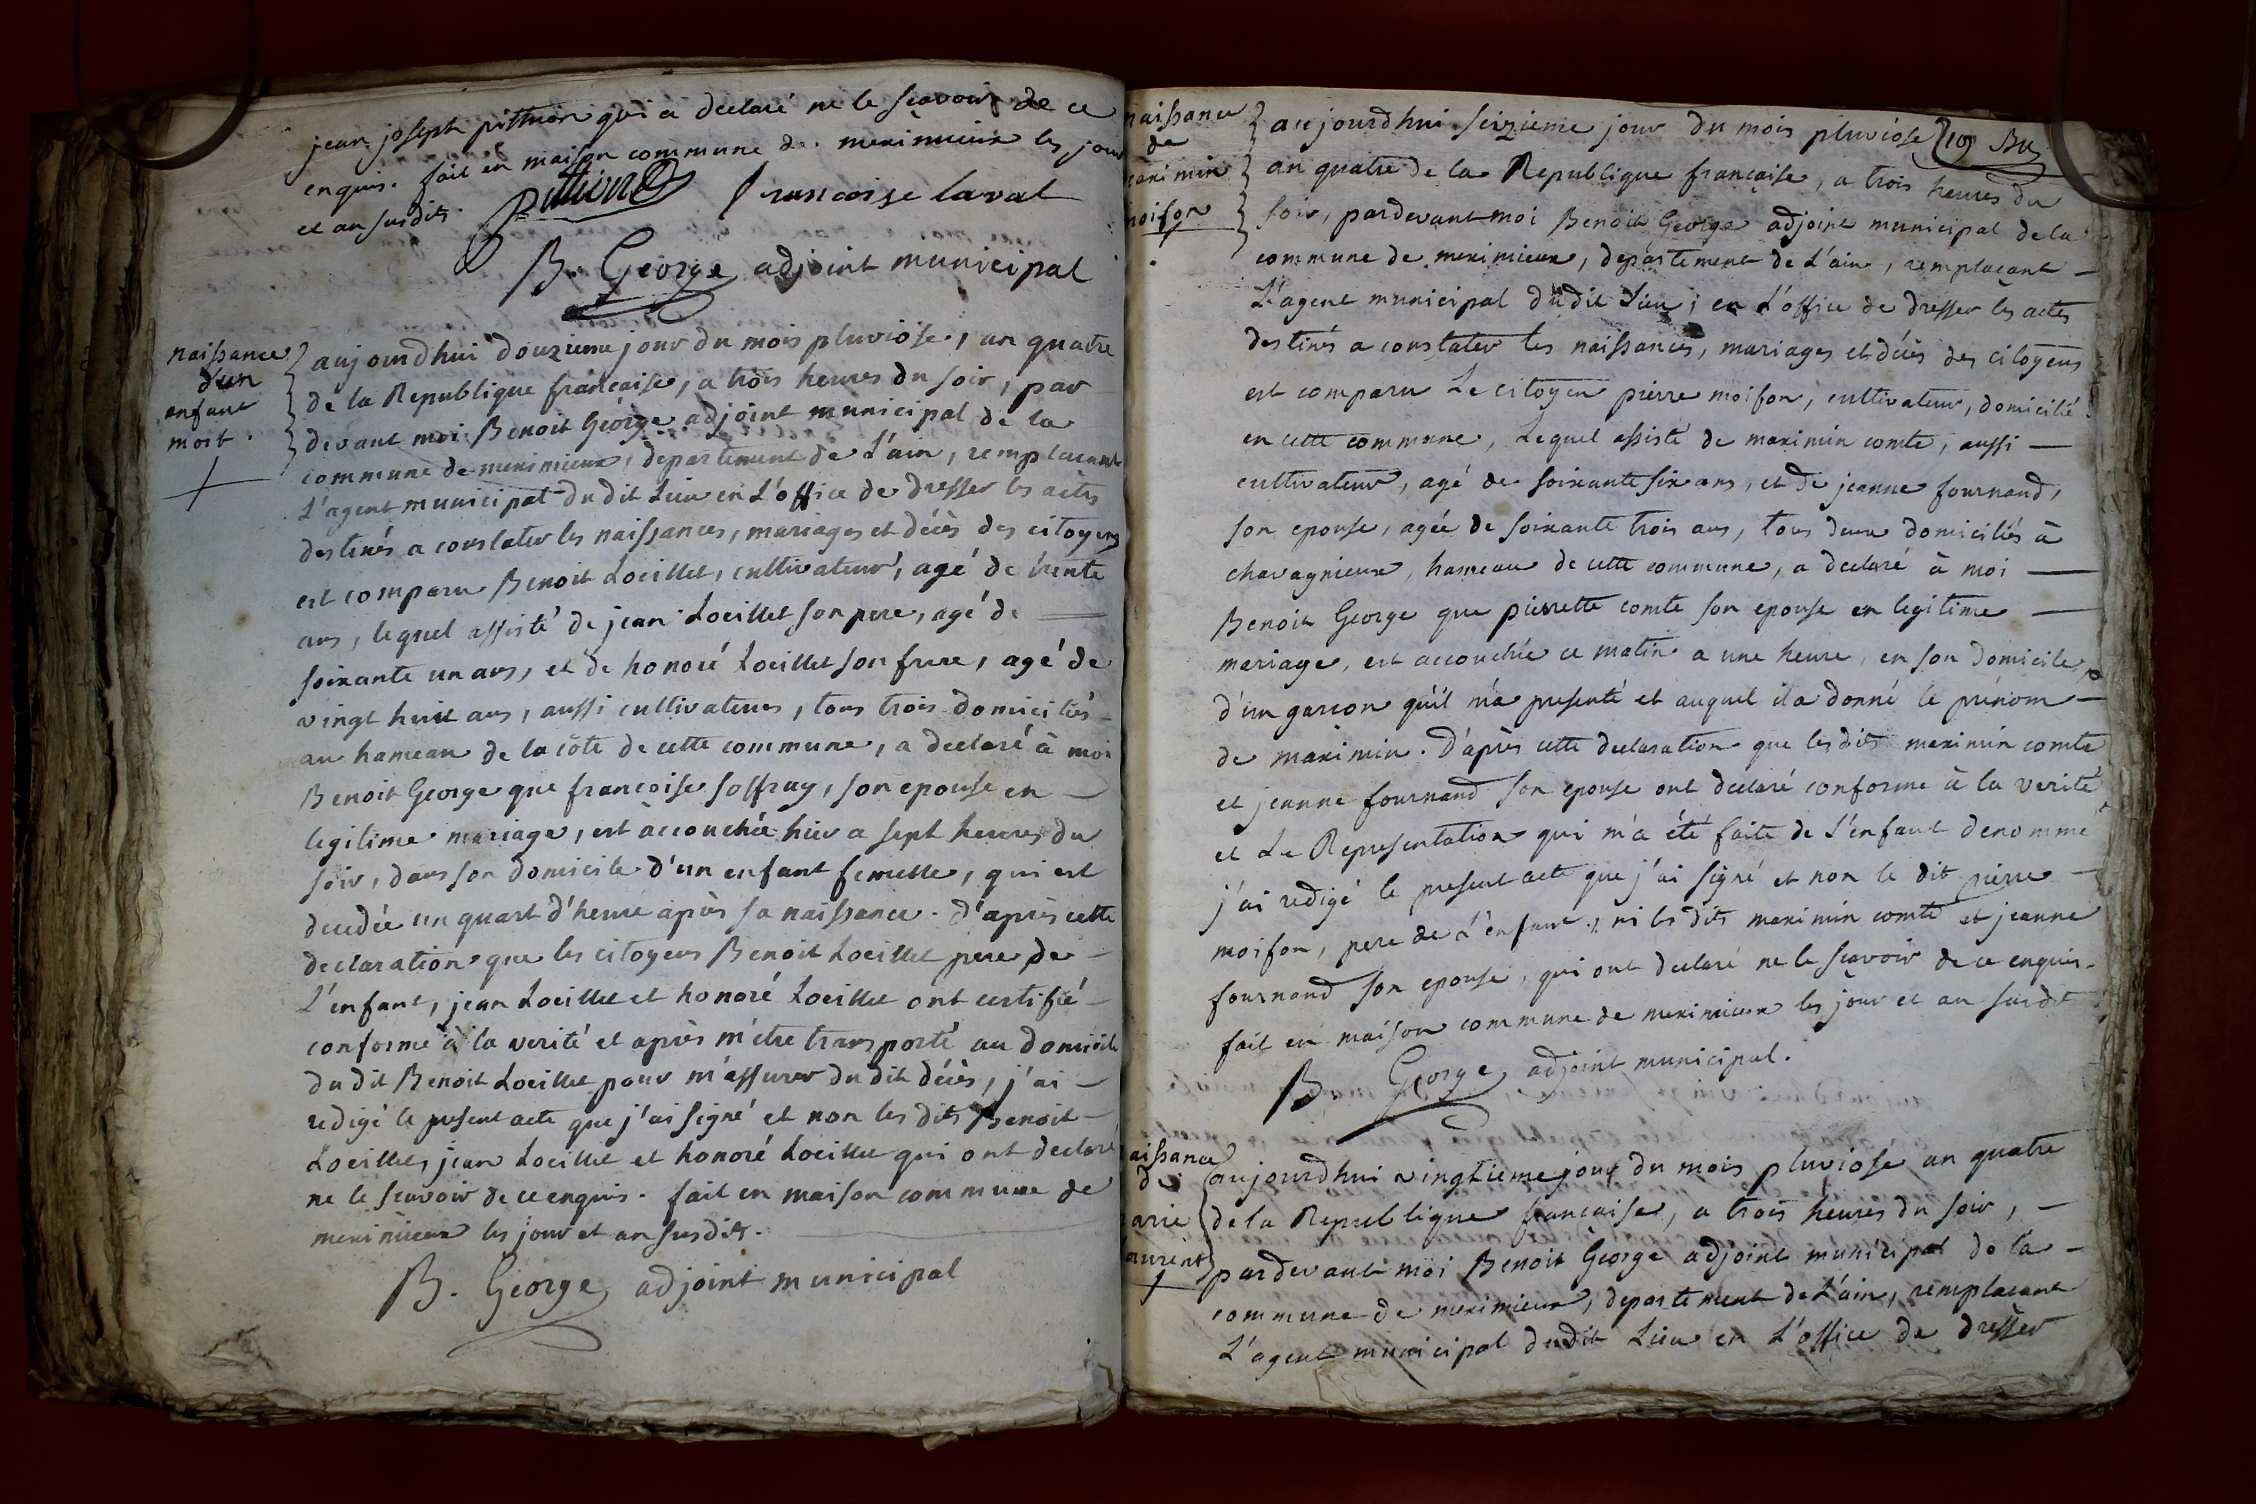 jean joseph pithion qui a declaré ne le scavoir de ce
enquis. fait en maison commune de meximieux les jour
et an susdits.
pithion francoise laval
B. George adjoint municipal
naissance
d'un
enfant
mort.
aujourdhui douzieme jour du mois pluviose, an quatre
de la Republique francaise, a trois heures du soir, par
devant moi Benoit George adjoint municipal de la
commune de meximieux, departement de L'ain, remplacant
L'agent municipal du dit Lieu en L'office de dresser les actes
destinés a constater les naissances, mariages et décès des citoyens
est comparu Benoit Loeillet, cultivateur, agé de trente
ans, lequel assisté de jean Loeillet son pere, agé de
soixante un ans, et de honoré Loeillet son frere, agé de
vingt huit ans, aussi cultivateurs, tous trois domiciliés
au hameau de la côte de cette commune, a declaré à moi
Benoit George que francoise soffray, son epouse en
legitime mariage, est accouchée hier a sept heures du
soir, dans son domicile d'un enfant femelle, qui est
decedée un quart d'heure après sa naissance. D'après cette
declaration que les citoyens Benoit Loeillet pere de
L'enfant, jean Loeillet et honoré Loeillet ont certifié
conforme à la verité et après m'etre transporté au domicile
du dit Benoit Loeillet pour m'assurer du dit décès, j'ai
redigé le present acte que j'ai signé et non les dits Benoit
Loeillet, jean Loeillet et honoré Loeillet qui ont declaré
ne le scavoir de ce enquis. fait en maison commune de
meximieux les jour et an susdits.
B. George adjoint municipal
naissance
de
maximin
moifon
aujourdhui seizieme jour du mois pluviose
an quatre de la Republique francaise, a trois heures du
soir, pardevant moi Benoit George adjoint municipal de la
commune de meximieux, departement de L'ain, remplacant
L'agent municipal du dit Lieu, en L'office de dresser les actes
destinés a constater les naissances, mariages et décès des citoyens
est comparu Le citoyen pierre moifon, cultivateur, domicilié
en cette commune, Lequel assisté de maximin comte, aussi
cultivateur, agé de soixante six ans, et de jeanne fournand,
son epouse, agée de soixante trois ans, tous deux domiciliés à
chavagnieux, hameau de cette commune, a declaré à moi
Benoit George que pierrette comte son epouse en legitime
mariage, est accouchée ce matin a une heure, en son domicile
d'un garcon qu'il m'a presenté et auquel il a donné le prénom
de maximin. D'après cette declaration que les dits maximin comte
et jeanne fournand son epouse ont declaré conforme à la verité
et La Representation qui m'a été faite de L'enfant denommé
j'ai redigé le present acte que j'ai signé et non le dit pierre
moifon, pere de L'enfant, ni les dits maximin comte et jeanne
fournand son epouse, qui ont declaré ne le scavoir de ce enquis.
fait en maison commune de meximieux les jour et an susdits
B George adjoint municipal.
aissance
de
arie
aurent
aujourdhui vingtieme jour du mois pluviose an quatre
de la Republique francaise, a trois heures du soir,
pardevant moi Benoit George adjoint municipal de la
commune de meximieux, departement de L'ain, remplacant
L'agent municipal du dit Lieu en L'office de dresser